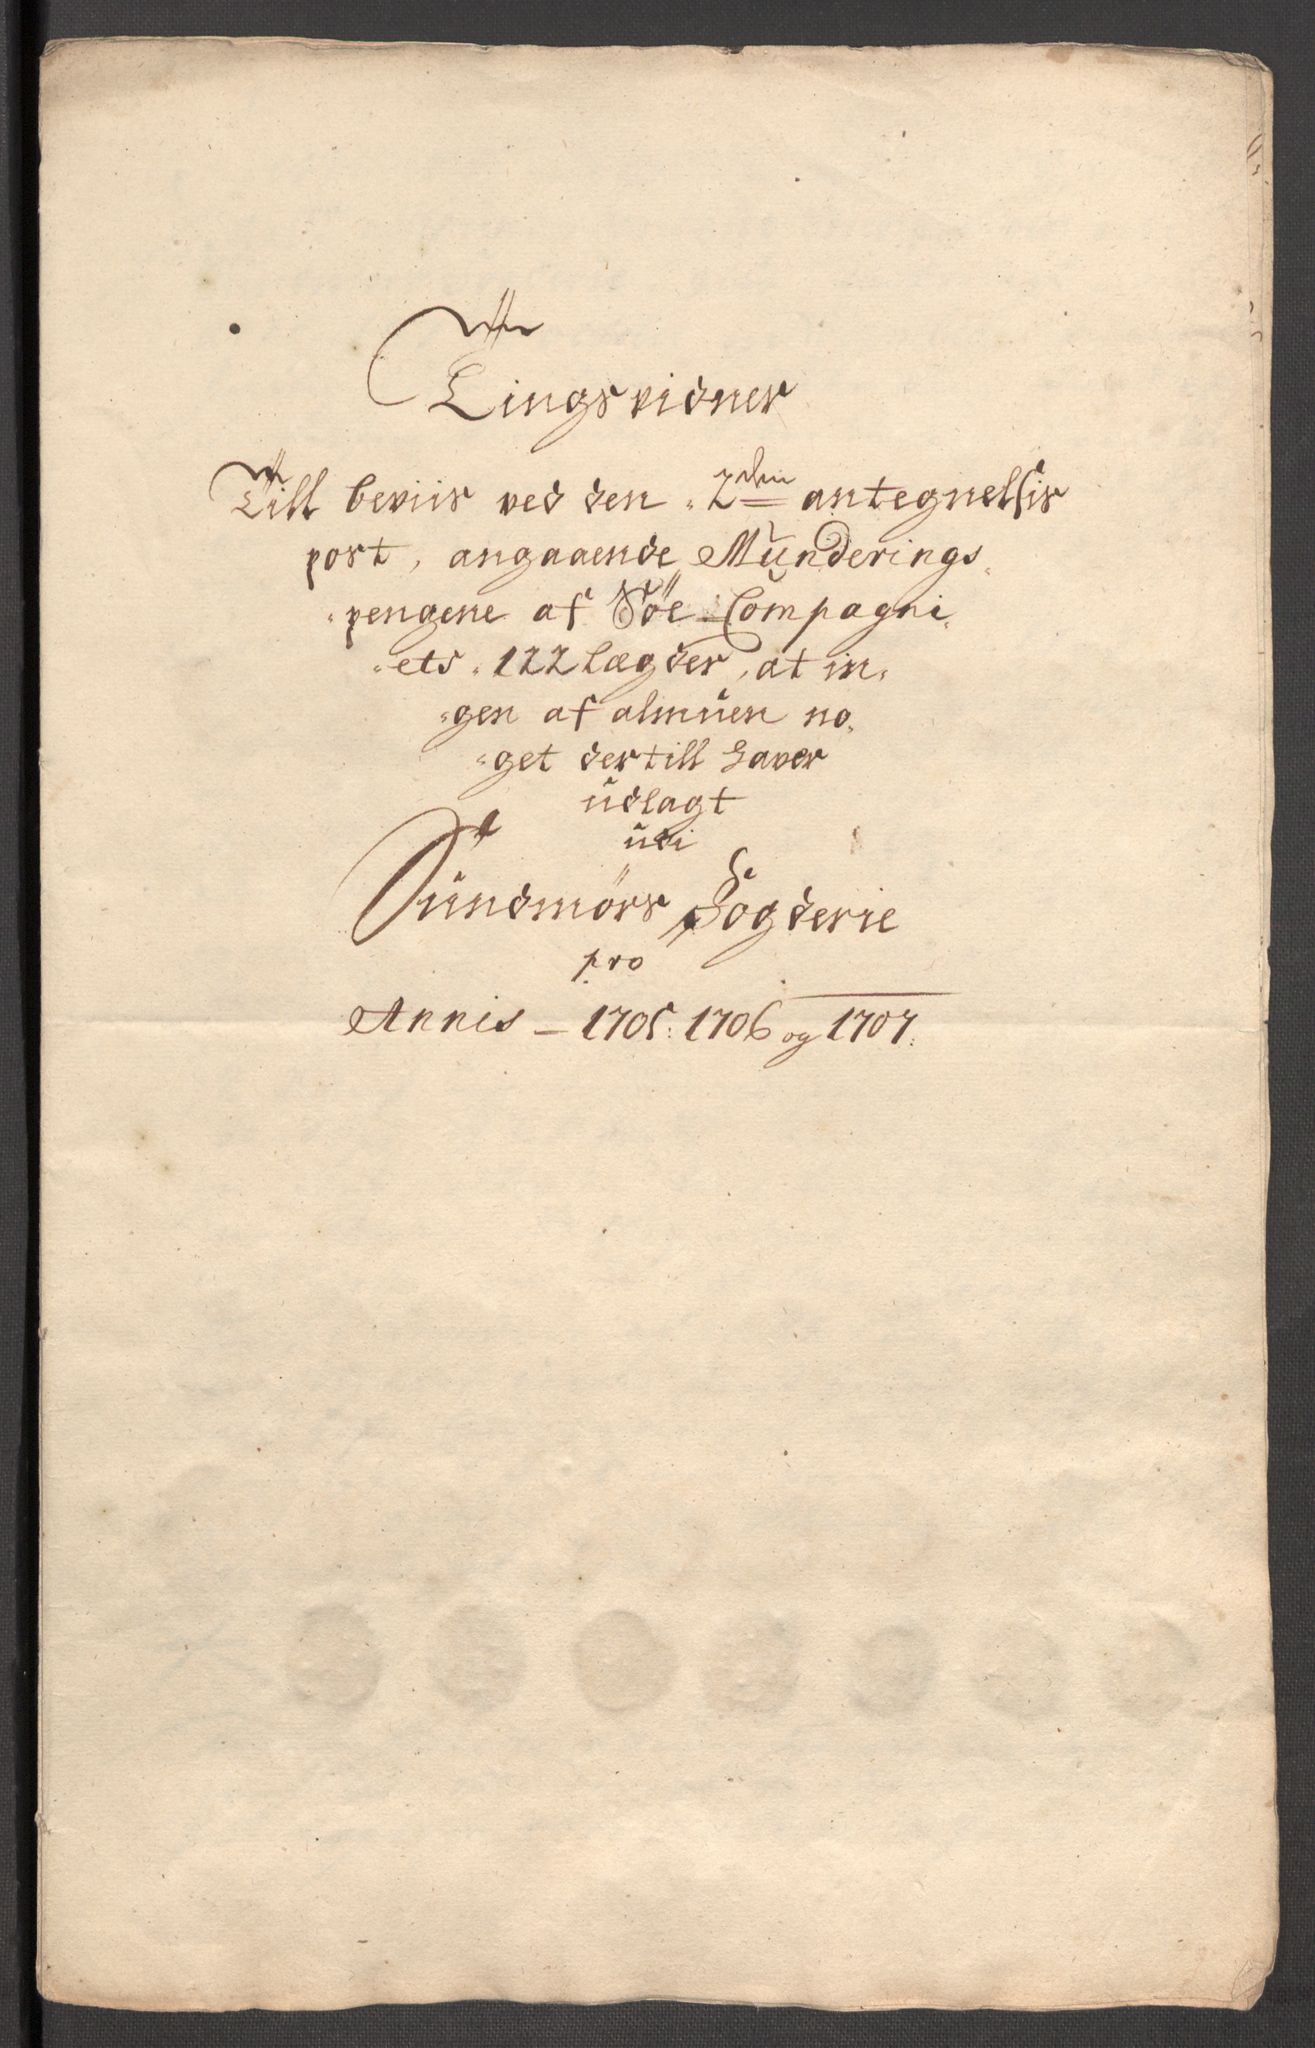 Tingsvidner
Till beviis ved den 2den antegnelsis
post, angaaende Munderings-
pengene af Söe Compagni-
ets 122 lægder, at in-
gen af almuen no-
get dertill haver
udlagt
udi
Sundmörs Fogderie
pro
Annis - 1705: 1706 og 1707: